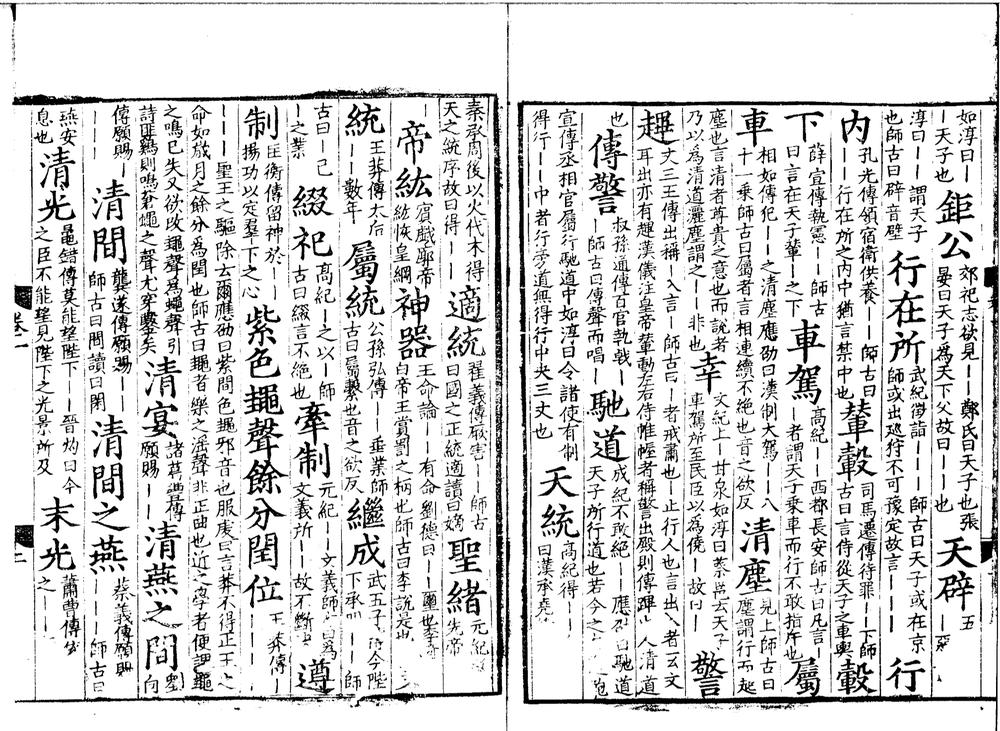 如淳曰｜｜｜天子也 鉅公 郊祀志欲見｜｜鄭氏曰天子也張晏曰天子為天下父故曰｜｜也 天辟 五
淳曰｜｜謂天子也師古曰辟音壁 行在所 武紀徵詣｜｜｜師古曰天子或在京師或出巡狩不可豫定故言｜｜｜ 行
內 孔光傳領宿衛供養｜｜師古曰｜｜行在所之內中猶言禁中也 輦轂 司馬遷傳待罪｜｜下師古曰言侍從天子之車輿 轂
下 薛宣傳執憲｜｜師古曰言在天子輦｜之下 車駕 高紀｜｜西都長安師古曰凡言｜｜者謂天子乘車而行不敢指斥也 屬
車 相如傳犯｜｜之清塵應劭曰漢制大駕｜｜八十一乘師古曰屬者言相連續不絕也音之欲反 清塵 見上師古曰塵謂行而起
塵也言清者尊貴之意也而說者乃以為清道灑塵謂之｜｜非也 幸 文紀上｜甘泉如淳曰蔡邕云天子車駕所至民臣以為僥｜故曰｜ 警
趯 文三王傳出稱｜入言｜師古曰｜者戒肅也｜止行人也言出入者云文耳出亦有趯漢儀注皇帝輦動左右侍帷幄者稱警出殿則傳蹕 人清道
也 傳警 叔孫通傳百官執戟｜｜師古曰傳聲而唱｜ 馳道 成紀不敢絕｜｜應劭曰馳道天子所行道也若今之
宣傳丞相官屬行馳道中如淳曰令諸使有制得行｜｜中者行旁道無得行中央三丈也 天統 高紀得｜｜曰漢承堯
秦承周後以火代木得天之統序故曰得｜｜ 適統 翟義傳厥害｜｜師古曰國之正統適讀曰嫡 聖緒 元紀 先帝
｜｜ 帝紘 賓戲鄣帝紘恢皇綱 神器 王命論｜｜有命劉德曰｜｜璽也李 曰帝王賞罰之柄也師古曰李說是也
統 王莽傳太后｜｜數年 屬統 公孫弘傳｜｜垂業師古曰屬繫也音之欲反 繼成 武五子 今陛下承｜｜師
古曰｜己｜之業 綴祀 高紀｜之以｜師古曰綴言不絕也 牽制 元紀｜｜文義師古曰為文義所｜｜故不斷也 遵
制 匡衡傳留神於｜｜揚功以定羣下之心 紫色䵷聲餘分閏位 王莽傳｜
｜｜聖王之驅除云爾應劭曰紫間色䵷邪音也服虔曰言莽不得正王之命如歲月之餘分為閏也師古曰䵷者樂之淫聲非正曲也近之學者便謂䵷
之鳴已失又欲改䵷聲為蠅聲引詩匪雞則鳴蒼蠅之聲尤穿鑿矣 清宴 諸葛豐傳願賜｜｜ 清燕之間 劉向
傳願賜｜｜｜｜ 清間 龔遂傳願賜｜｜師古曰間讀曰閑 清間之燕 蔡義傳願賜｜｜｜｜師古曰
燕安息也 清光 鼂錯傳莫能望陛下｜｜晉灼曰今之臣不能望見陛下之光景所及 末光 蕭曹傳 之｜｜
卷一
二